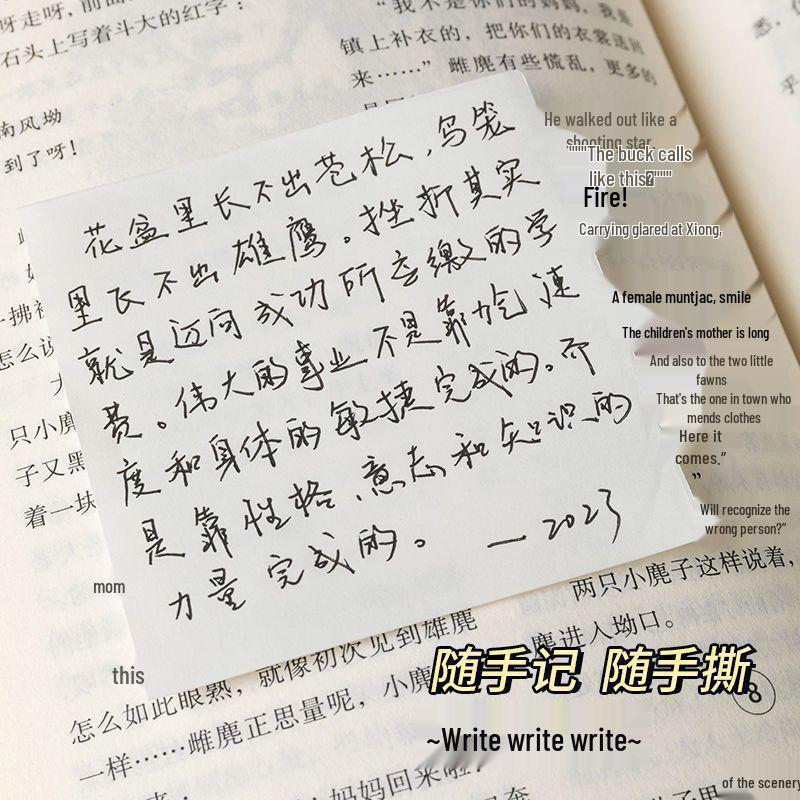 呀走呀，前面
石头上写着斗大的红字：
南风坳
到了呀！
"我不是你们的妈妈，我是
镇上补衣的，把你们的衣裳送回
来……"雌麂有些慌乱，更多的
花盆里长不出苍松，鸟笼
里长不出雄鹰。挫折其实
就是迈向成功所应缴的学
费。伟大的事业不是靠力气、速
度和身体的敏捷完成的。而
是靠性格、意志和知识的
力量完成的。
—2023
He walked out like a
shooting star.
"""The buck calls
like this
Fire!
Carrying glared at Xiong,
A female muntjac, smile
The children's mother is long
And also to the two little
fawns
That's the one in town who
mends clothes
Here it
comes."
"
Will recognize the
wrong person?"
一拂袖
怎么说
只小麂
子又黑
着一块
mom
this
两只小麂子这样说着，
麂进入坳口。
就像初次见到雄麂
怎么如此眼熟，
一样……雌麂正思量呢，小麂
妈妈回来啦！
随手记 随手撕
8
~Write write write~
of the scenery